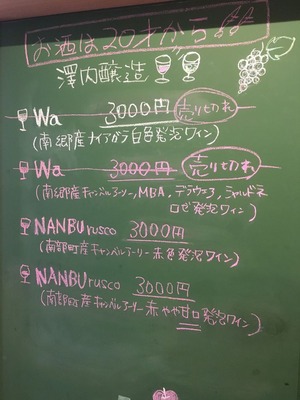 お酒は20才から
澤内醸造
Wa 3000円 売り切れ
(南郷産ナイアガラ白色発泡ワイン)
Wa 3000円 売り切れ
(南郷産キャンベルアーリー、MBA、デラウェア、シャルドネ
ロゼ発泡ワイン)
NANBUrusco 3000円
(南部町産キャンベルアーリー赤色発泡ワイン)
NANBUrusco 3000円
(南部町産キャンベルアーリー赤やや甘口発泡ワイン)